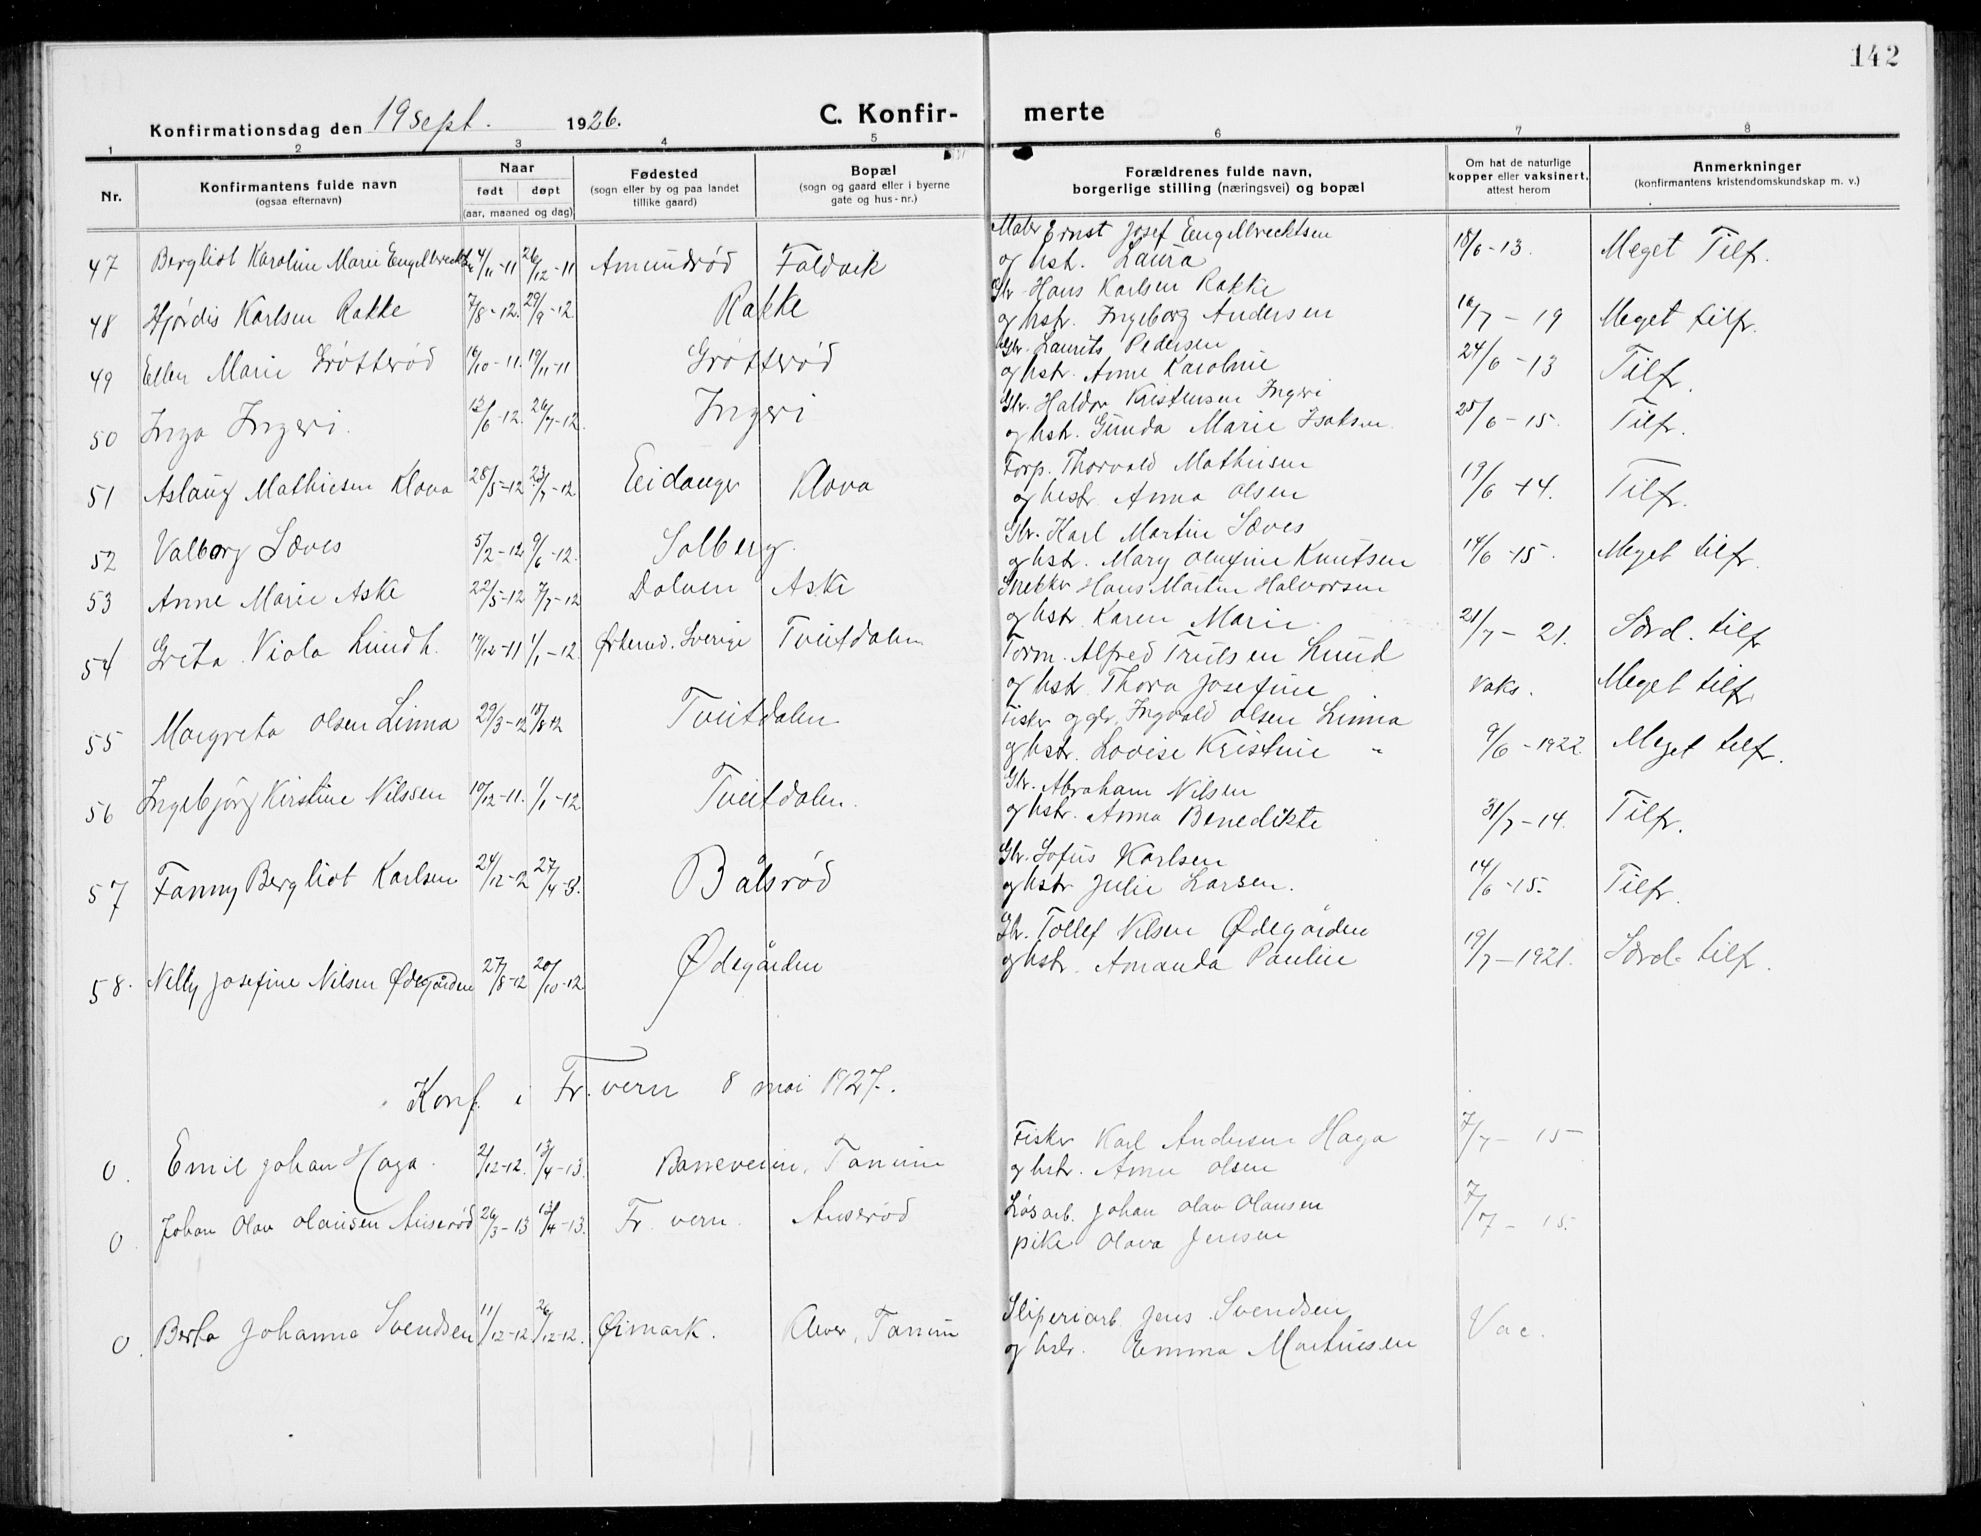 142
Konfirmationsdag den 19 sept. 1926.
C. Konfir- merte
1 2 3 4 5 6 7 8
Nr.
Konfirmantens fulde navn
(ogsaa efternavn)
Naar
født døpt
(aar, maaned og dag)
Fødested
(sogn eller by og paa landet
tillike gaard)
Bopæl
(sogn og gaard eller i byerne
gate og hus-nr.)
Forældrenes fulde navn,
borgerlige stilling (næringsvei) og bopæl
Om hat de naturlige
kopper eller vaksinert,
attest herom
Anmerkninger
(konfirmantens kristendomskundskap m. v.)
Maler Ernst Josef Engelbrecktsen
47 Bergliot Karoline Marie Engelbrecktsen 4/11-11 26/12-11 Amundrød Foldvik og hst. Laura 18/6-13. Meget Tilf.
Gbr. Hans Karlsen Rakke
48 Hjørdis Karlsen Rakke 7/8-12. 29/9-12 Rakke og hstr. Ingeborg Andersen 16/7-19 Meget tilfr.
Gbr. Laurits Pedersen
49 Ellen Marie Grøtterød 16/10-11. 19/11-11 Grøtterød og hstr. Anne Karoline 24/6-13 Tilfr.
Gbr. Haldor Kristensen Ingeri
50 Inga Ingeri. 13/6-12. 26/7-12. Ingeri og hstr. Gunda Marie Isaksen 25/6-15. Tilfr.
Forp. Thorvald Mathisen
51 Aslaug Mathiesen Klova 28/5-12 23/7-12 Eidanger Klova og hstr. Anna Olsen 19/6 14. Tilfr.
Gbr. Karl Martin Sæves
52 Valborg Sæves 5/2-12 9/6-12. Solberg. og hstr. Mary Olufine Knutsen 14/6-15. Meget tilfr.
Snekker Hans Martin Halvorsen
53 Anne Marie Aske 22/5-12 7/7-12 Dolven Aske og hstr. Karen Marie. 21/7-21. Særd. tilf
Form. Alfred Trulsen Lund
54 Greta Viola Lundh. 19/12-11 1/1-12. Sverige Tveitdalen og hstr. Thora Josefine vaks. Meget tilfr.
Fisker og gbr. Ingvald Olsen Linna
55 Margreta Olsen Linna 29/3-12 18/8 12 Tveitdalen og hstr. Lovise Kristine " 9/6-1922 Meget tilfr.
Gbr. Abraham Nilsen
56 Ingebjørg Kirstine Nilssen 10/12-11. 1/1-12. Tveitdalen. og hstr. Anna Benedikte 31/7-14. Tilfr.
Gbr. Sofus Karlsen
57 Fanny Bergliot Karlsen 24/12-12 27/4-3. Bålsrød og hstr Julie Larsen. 14/6-15. Tilfr.
Gbr. Tollef Nilsen Ødegården
58. Nelly Josefine Nilsen Ødegården 27/8-12 20/10-12. Ødegården og hstr. Amanda Pauline 19/7-1921. Særd. tilf.
Konf. i Fr. vern 8 mai 1927.
Fisker Karl Andersen Haga
0. Emil Johan Haga. 2/12-12. 13/4-13. Tanum og hstr. Anne Olsen 7/7-15
Løsarb. Johan Olav Olausen
0 Johan Olav Olausen Anserød 26/3-13 13/4-13. Fr. vern. Anserød pike Olava Jensen 7/7-15.
Sliperiarb. Jens Svendsen
0. Berta Johanne Svendsen 11/12-12 26/12-12. Øimark. Klever, Tanum og hstr. Emma Martinsen Vac.